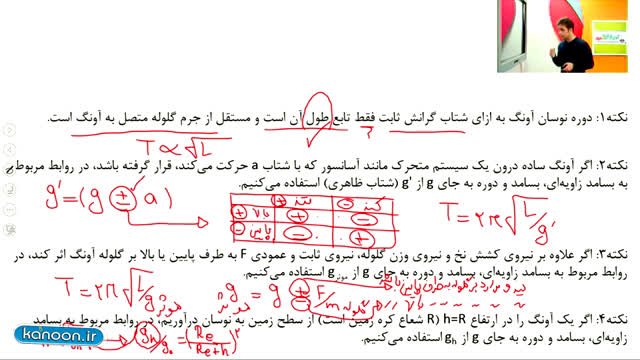 نکته۱: دوره نوسان آونگ به ازای شتاب گرانش ثابت فقط تابع طول آن است و مستقل از جرم گلوله متصل به آونگ است.
T ∝ √L
نکته۲: اگر آونگ ساده درون یک سیستم متحرک مانند آسانسور که با شتاب a حرکت می‌کند، قرار گرفته باشد، در روابط مربوط
به بسامد زاویه‌ای، بسامد و دوره به جای g از g' (شتاب ظاهری) استفاده می‌کنیم.
g' = (g ± a)
تند + کند -
بالا + + -
پایین - - +
T = ۲π√L/g'
نکته۳: اگر علاوه بر نیروی کشش نخ و نیروی وزن گلوله، نیروی ثابت و عمودی F به طرف پایین یا بالا بر گلوله آونگ اثر کند، در
روابط مربوط به بسامد زاویه‌ای، بسامد و دوره به جای g از g موثر استفاده می‌کنیم.
T = ۲π√L/g موثر
g موثر = g ± F/m
نکته۴: اگر یک آونگ را در ارتفاع h=R (R شعاع کره زمین است) از سطح زمین به نوسان درآوریم، در روابط مربوط به بسامد
زاویه‌ای، بسامد و دوره به جای g از gh استفاده می‌کنیم.
gh/g۰ = (Re/Re+h)۲
kanoon.ir